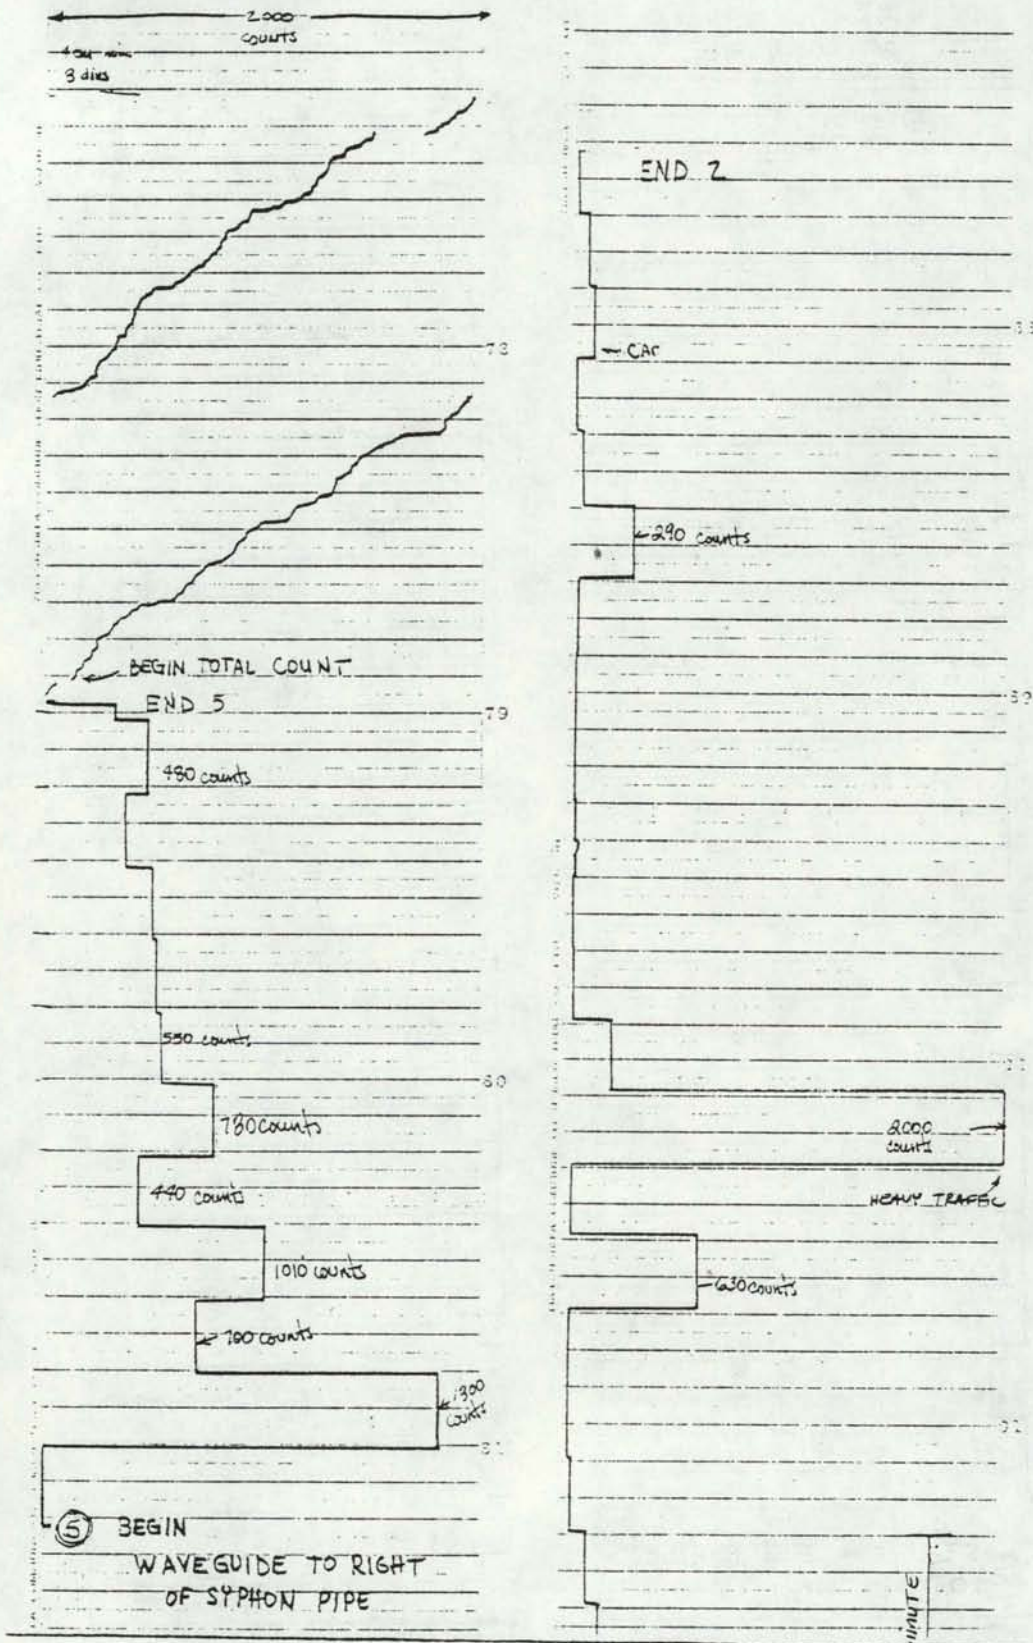 2000
COUNTS
3 divs
78
BEGIN TOTAL COUNT
END 5
79
480 counts
550 counts
80
780 counts
440 counts
1010 counts
700 counts
1800
counts
81
5 BEGIN
WAVEGUIDE TO RIGHT
OF SYPHON PIPE
END 2
CAr
290 counts
2000
counts
HEAVY TRAFFIC
630 counts